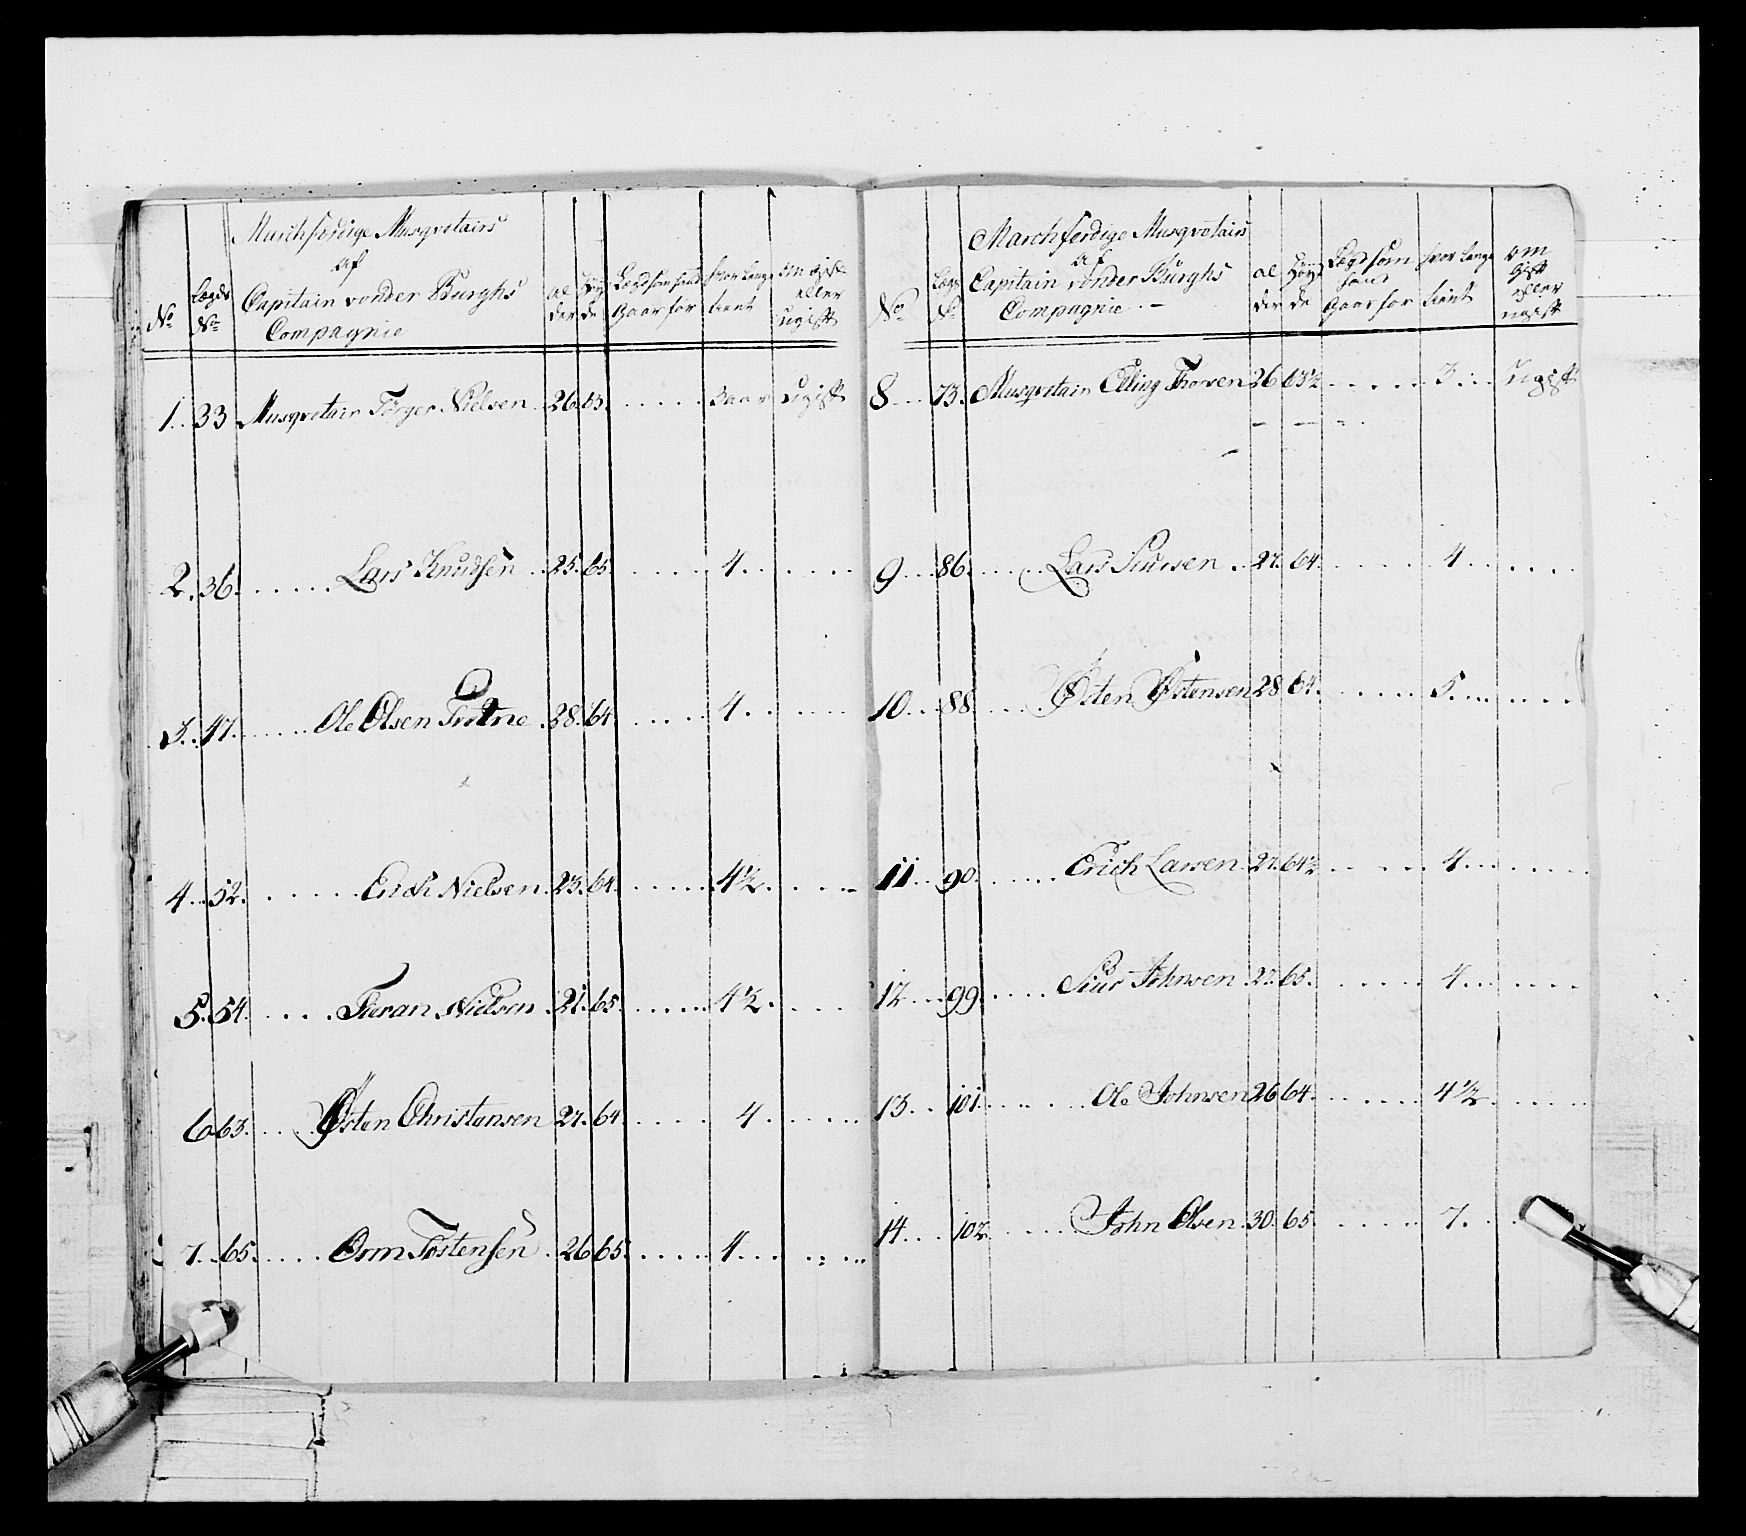 Marchferdige Musqvetairs
af
Capitain vonder Burghs
Compagnie
No Lægds No al der Høy de Lægd som hand Gaar for hvor lenge tient om gift eller ugift
1 33 Musqvetair Törger Nielsen 26 63 3 aar Ugift
2 36 Lars Knudsen 25 65 4
3 47 Ole Olsen 28 64 4
4 52 Erich Nielsen 23 64 4½
5 54 Nielsen 21 65 4½
6 63 Østen Christensen 27 64 4
7 65 Orm Tostensen 26 65 4
Marchferdige Musqvetairs
af
Capitain vonder Burghs
Compagnie
No Lægds No al der Høy de Lægd som hand Gaar for hvor lenge tient om Gift eller ugift
8 73 Musqvetair Elling Thoresen 26 63½ 3 Ugift
9 86 Lars Siursen 27 64 4
10 88 Østen Østensen 28 64 5
11 90 Erich Larsen 27 64½ 4
12 99 Siur Johnsen 27 65 4
13 101 Ole Johnsen 26 64 4½
14 102 John Olsen 30 65 7